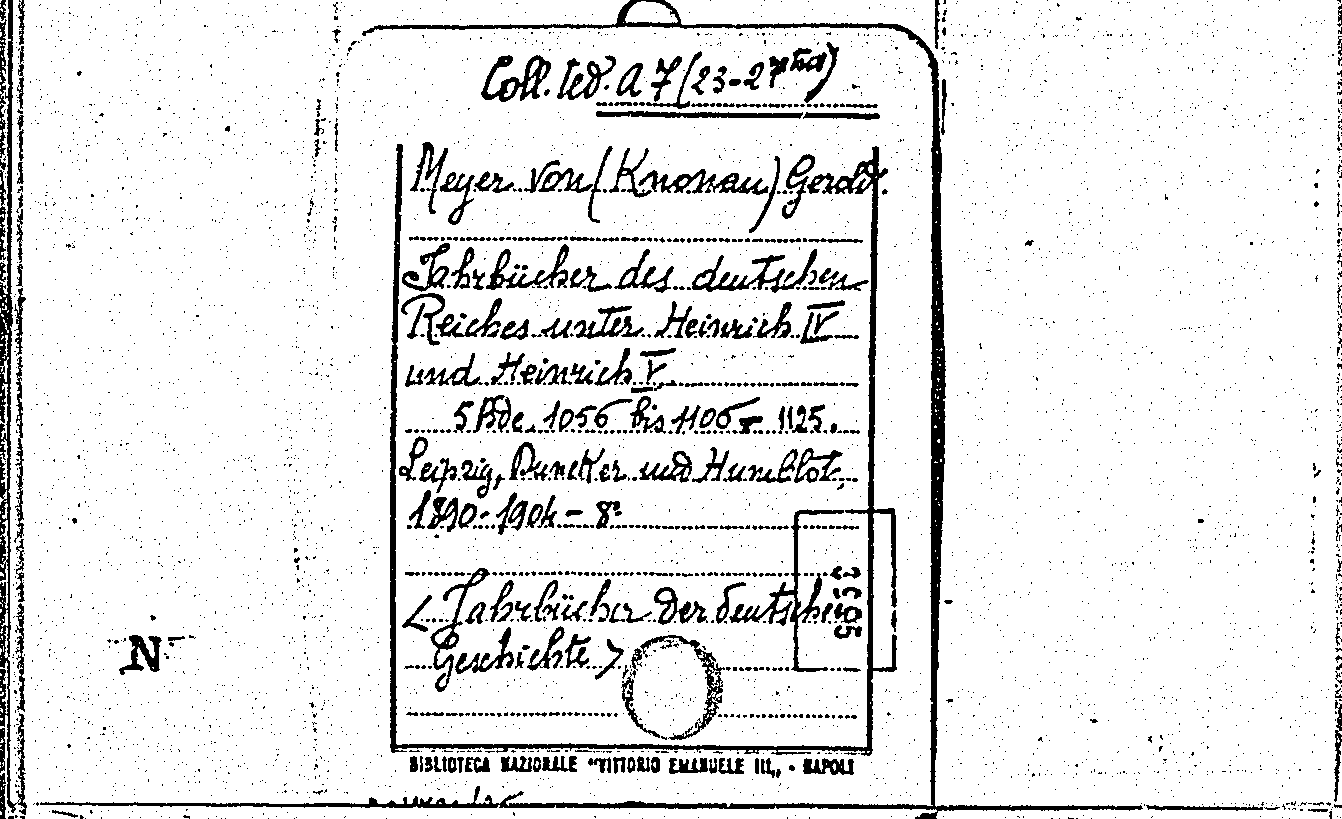 Coll. ted. A 7 (23-27
Meyer von (Knonau) Gerold.
Jahrbücher des deutschen
Reiches unter Heinrich IV
und Heinrich V.
5 Bde. 1056 bis 1106 - 1125.
Leipzig, Duncker und Humblot,
1890-1904 - 8º
< Jahrbücher der deutschen
Geschichte >
N
BIBLIOTECA NAZIONALE "VITTORIO EMANUELE III,, - NAPOLI